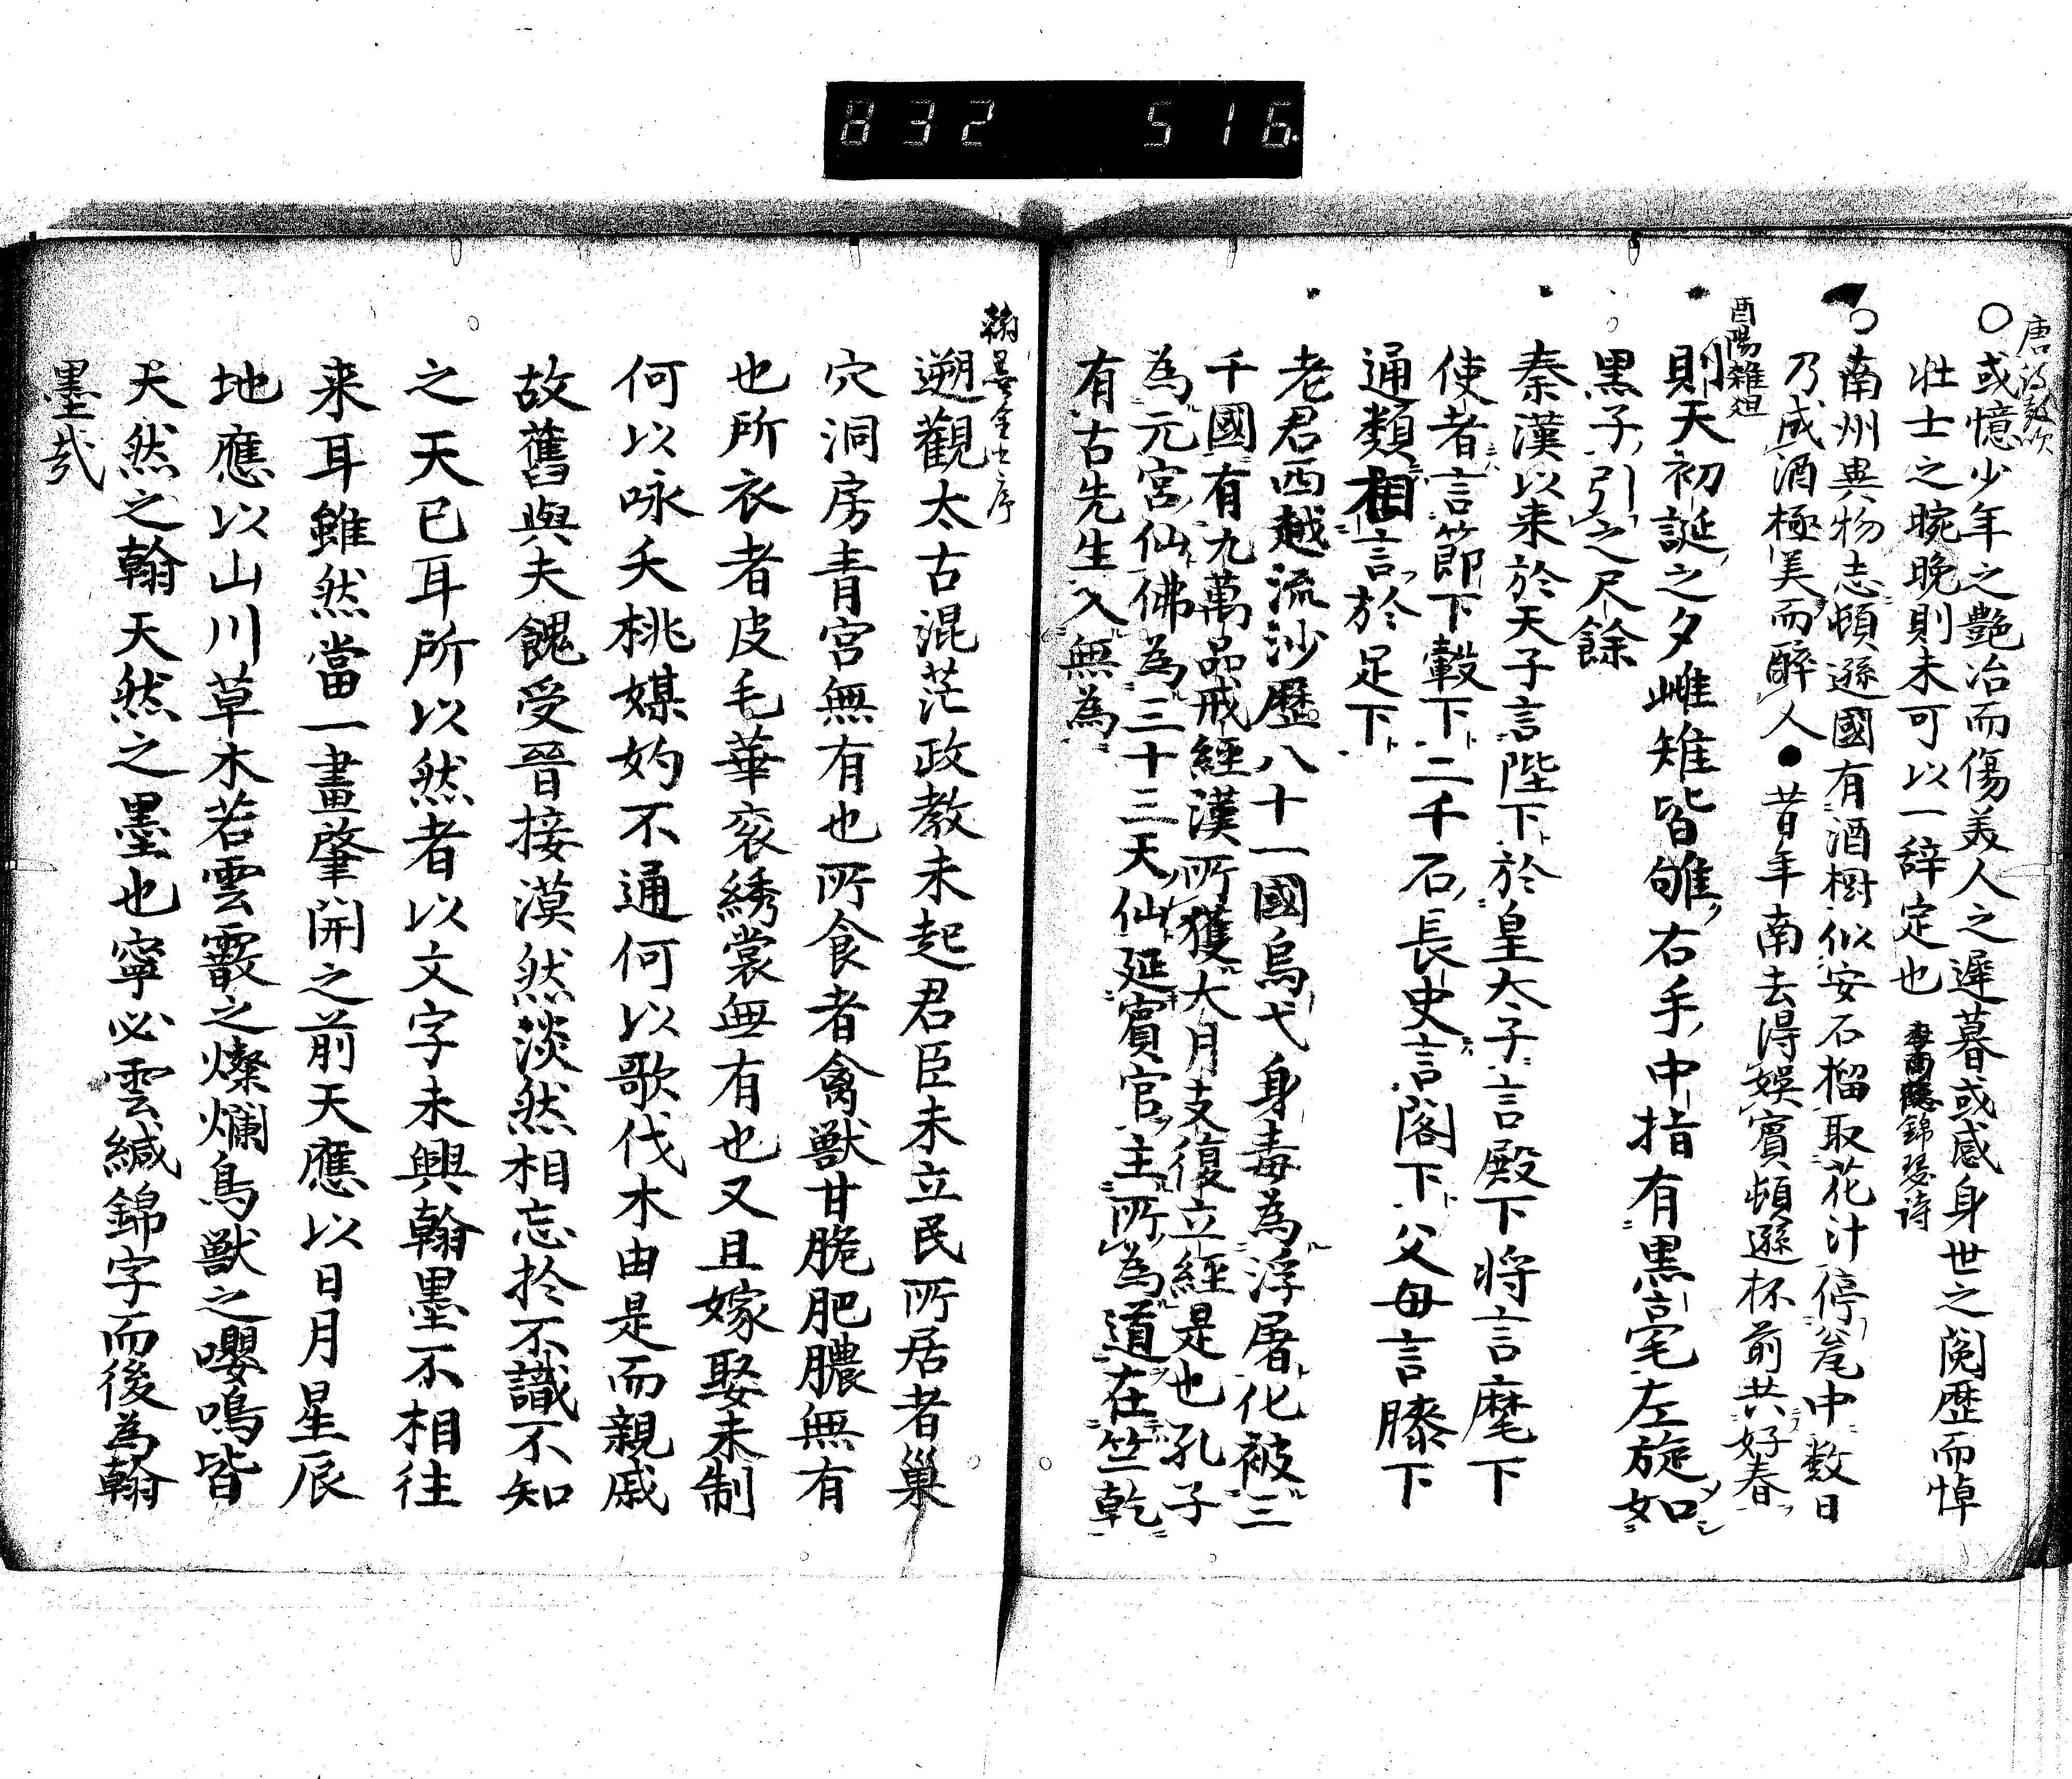 832 516
唐詩鼓吹
○或憶少年之艶冶而傷美人之遲暮或感身世之閲歴而悼
壮士之晼晩則未可以一辞定也 李商隠錦瑟詩
南州異物志頓遜國有酒樹似安石榴取花汁停瓮中数日
乃成酒極美而醉人●昔年南去得娯賓頓遜杯前共好春
酉陽雜俎
則天初誕之夕雌雉皆雊右手中指有黒毫左旋如
黒子引之尺餘
秦漢以来於天子言陛下於皇太子言殿下将言麾下
使者言節下轂下二千石長史言閣下父母言膝下
通類相言於足下
老君西越流沙歴八十一國烏弋身毒為浮屠化被三
千國有九萬品戒經漢所獲大月支復立經是也孔子
為元宮仙佛為三十三天仙延賓官主所為道在竺乾
有古先生入無為
翰墨全書序
遡觀太古混茫政教未起君臣未立民所居者巣
穴洞房青宮無有也所食者禽獣甘脆肥膿無有
也所衣者皮毛華衮綉裳無有也又且嫁娶未制
何以咏夭桃媒妁不通何以歌伐木由是而親戚
故舊與夫餽受晉接漠然淡然相忘於不識不知
之天已耳所以然者以文字未興翰墨不相往
来耳雖然當一畫肇開之前天應以日月星辰
地應以山川草木若雲霞之燦爛鳥獣之嚶鳴皆
天然之翰天然之墨也寧必雲緘錦字而後為翰
墨哉